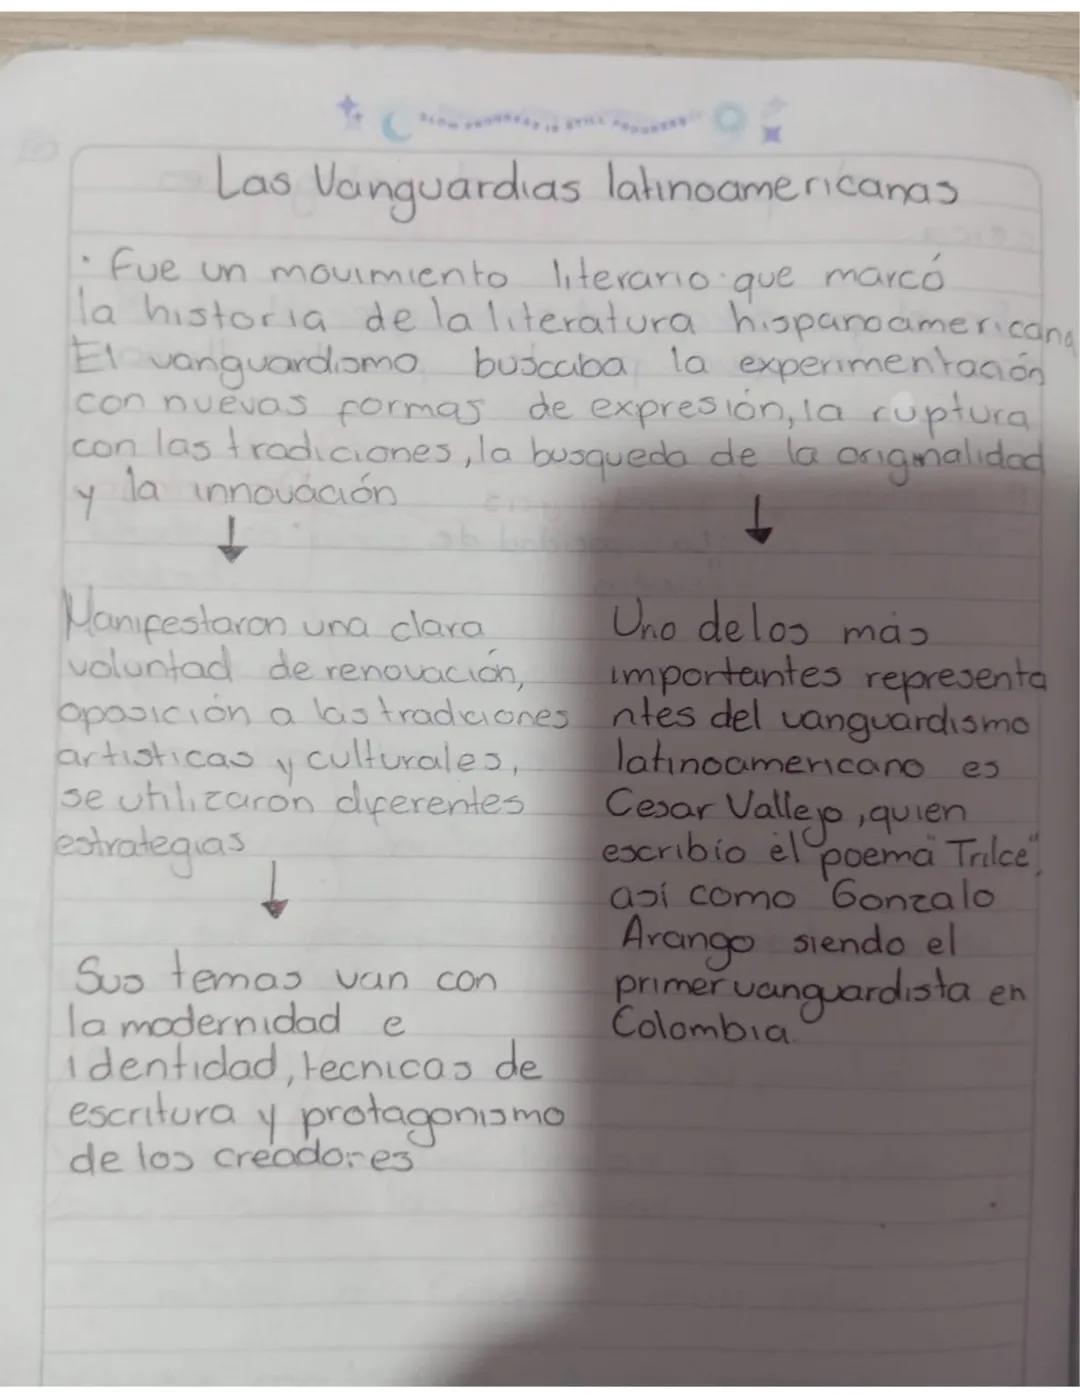 SLOW PROGRESS IS STILL PROGRESS
Las Vanguardias latinoamericanas
· Fue un movimiento literario que marcó
la historia de la literatura hispanoamericana
El vanguardismo buscaba la experimentación
con nuevas formas de expresión, la ruptura
con las tradiciones, la busqueda de la originalidad
y la innovación
Manifestaron una clara
voluntad de renovación,
oposición a las tradiciones
artisticas y culturales,
se utilizaron diferentes
estrategias
Sus temas van con
la modernidad e
identidad, tecnicas de
escritura y protagonismo
de los creadores
Uno de los más
importantes representa
ntes del vanguardismo
latinoamericano es
Cesar Vallejo, quien
escribío el "poema Trilce",
así como Gonzalo
Arango siendo el
primer vanguardista en
Colombia.